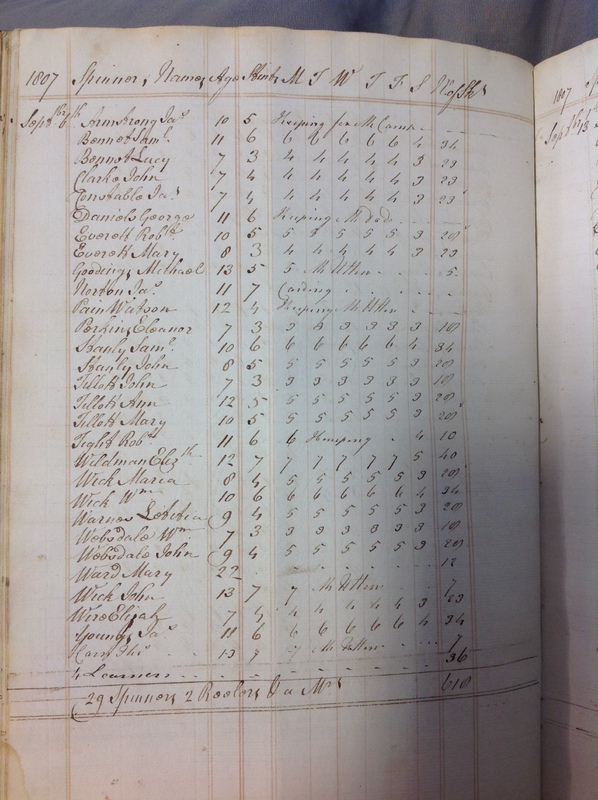 1807 Spinners Names Age Stints M T W T F S No of Sks
Septbr 6th Armstrong Jas 10 5 Keeping for Mr Camp
Bennet Saml 11 6 6 6 6 6 6 4 34
Bennet Lucy 7 3 4 4 4 4 4 3 23
Clarke John 7 4 4 4 4 4 4 3 23
Constable Jas 7 4 4 4 4 4 4 3 23
Daniels George 11 6 Keeping
Everett Robt 10 5 5 5 5 5 5 3 28
Everett Mary 8 3 4 4 4 4 4 3 23
Goodings Michael 13 5 5 5
Norton Jas 11 7 Carding
Pain Watson 12 4 Keeping
Perkins Eleanor 7 3 3 4 3 3 3 3
Stanly Saml 10 6 6 6 6 6 6 4 34
Stanly John 8 5 5 5 5 5 5 3 28
Tillott John 7 3 3 3 3 3 3 3 18
Tillott Ann 12 5 5 5 5 5 5 3 28
Tillott Mary 10 5 5 5 5 5 5 3 28
Tight Robt 11 6 6 Keeping 4 10
Wildman Elizth 12 7 7 7 7 7 7 5 40
Wick Maria 8 4 5 5 5 5 5 3 28
Wick Wm 10 6 6 6 6 6 6 4 34
Warnes Letitia 9 4 5 5 5 5 5 3 28
Websdale Wm 7 3 3 3 3 3 3 3 18
Websdale John 9 4 5 5 5 5 5 3 28
Ward Mary 22 12
Wick John 13 7 7 7
Wire Elijah 7 4 4 4 4 4 4 3 23
Youngs Jas 11 6 6 6 6 6 6 4 34
13 7 7 7
4 Learners 36
29 Spinners 2 Reelers
1807
Septbr 13